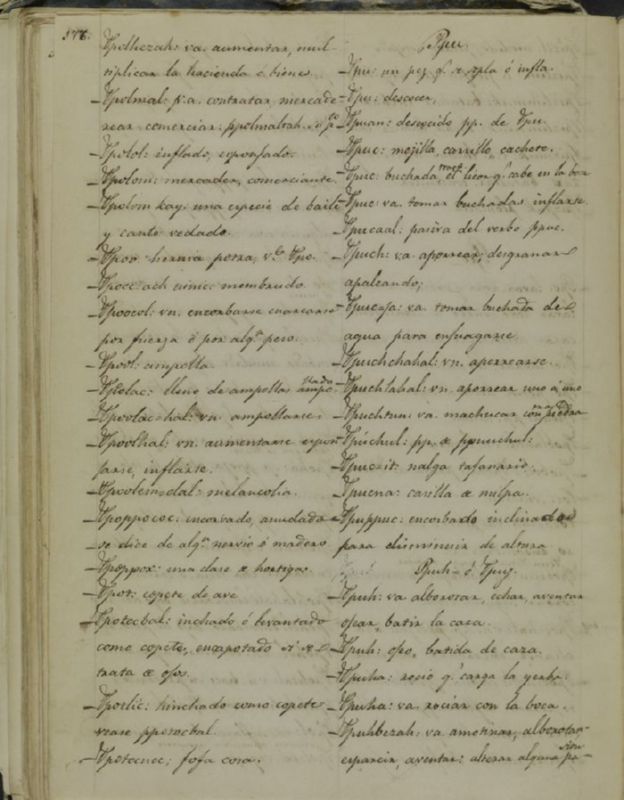 377.
Ppolhezah: va. aumentar, mul
tiplicar la hacienda o bienes
Ppolmal: p.a. contratar, mercade
rear comerciar: ppolmaltah.
Ppolol: inflado, esponjado.
Ppolom: mercader, comerciante.
Ppolom kay: una especie de baile
y canto vedado.
Ppoo: hernia potra, v.e Ppo.
Ppocc ach: membrudo
Ppoocol: vn. encorbarse
por fuerza ó por alg.n peso.
Ppool: ampolla.
lleno de ampollas
Ppoolac-hal: vn. ampollarse.
Ppoolhal: vn. aumentarse espon
jarse, inflarse.
melancolia.
Ppoppococ: encorvado, anudado
se dice de alg.n nervio ó madero
Ppoppox: una clase de hortigas
Ppot: copete de ave
Ppotocbal: inchado ó levantado
como copete, encapotado si se
trata de ojos.
hinchado como copete
vease ppotocbal.
fofa cosa.
Ppu
Ppu: un pez q.e se infla.
Ppu: descocer.
Ppuan: descocido pp. de Ppu.
Ppuc: mejilla, carrillo, cachete.
Ppuc: buchada, el licor q.e cabe en la boca
Ppuc: va. tomar buchadas, inflarse.
Ppucaal: pasiva del verbo ppuc.
Ppuch: va. aporrear, desgranar
apaleando;
va. tomar buchada de
agua para enjuagarse
Ppuchchahal: vn. aporrearse.
Ppuchlahal: vn. aporrear uno a uno
Ppuchtun: va. machucar con una piedra
Ppuchul: pp. de ppuuchul.
Ppucxit: nalga tafanario.
Ppucna:
Ppuppuc: encorbardo inclinado
para disminuir de altura
Ppuh ó Ppuy.
Ppuh: va alborotar, echar, aventar
ojear, batir la caza.
Ppuh: ojo, batida de caza.
Ppuha: rocio q.e carga la yerba.
Ppuha: va. rociar con la boca.
Ppuhbezah: va. amotinar, alborotar,
esparcir, aventar: alterar alguna pa-
sion